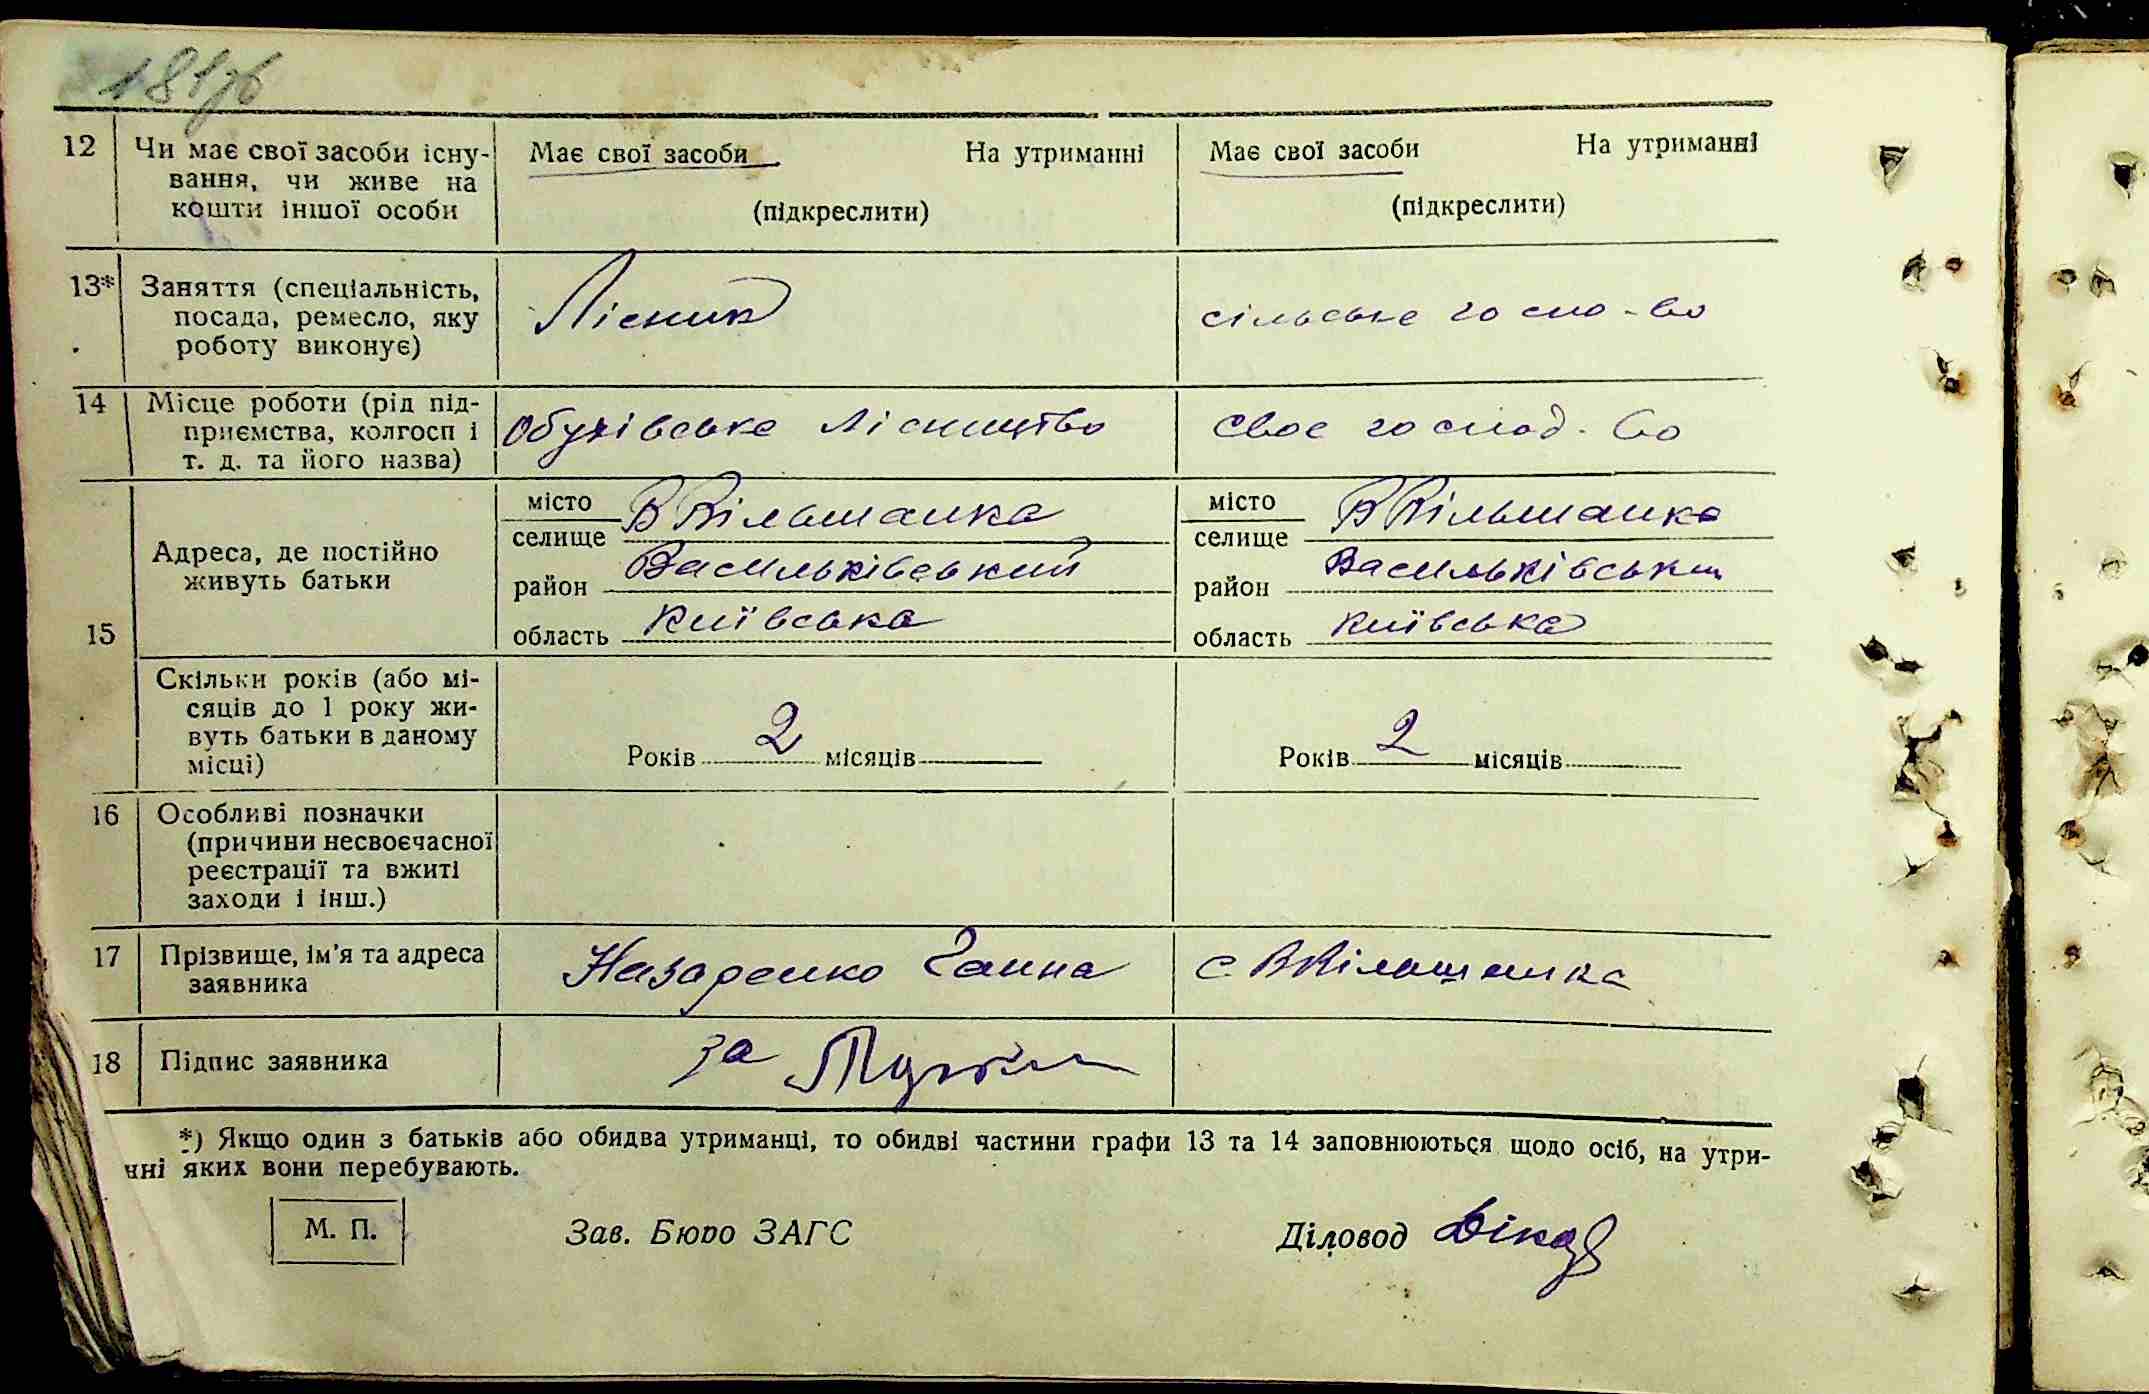 12 Чи має свої засоби існу- Має свої засоби На утриманні Має свої засоби На утриманні
вання, чи живе на
кошти іншої особи (підкреслити) (підкреслити)
13* Заняття (спеціальність, Лісник сільське госпо-во
посада, ремесло, яку
роботу виконує)
14 Місце роботи (рід під- Обухівське Лісництво своє господ-во
приємства, колгосп і
т. д. та його назва)
15 Адреса, де постійно
живуть батьки
місто В Вільшанка місто В Вільшанка
селище селище
район Васильківський район Васильківський
область Київська область Київська
Скільки років (або мі-
сяців до 1 року жи-
вуть батьки в даному
місці)
Років 2 місяців Років 2 місяців
16 Особливі позначки
(причини несвоєчасної
реєстрації та вжиті
заходи і інш.)
17 Прізвище, ім'я та адреса Назаренко Ганна с. В Вільшанка
заявника
18 Підпис заявника за
*) Якщо один з батьків або обидва утриманці, то обидві частини графи 13 та 14 заповнюються щодо осіб, на утри-
нні яких вони перебувають.
М. П. Зав. Бюро ЗАГС Діловод